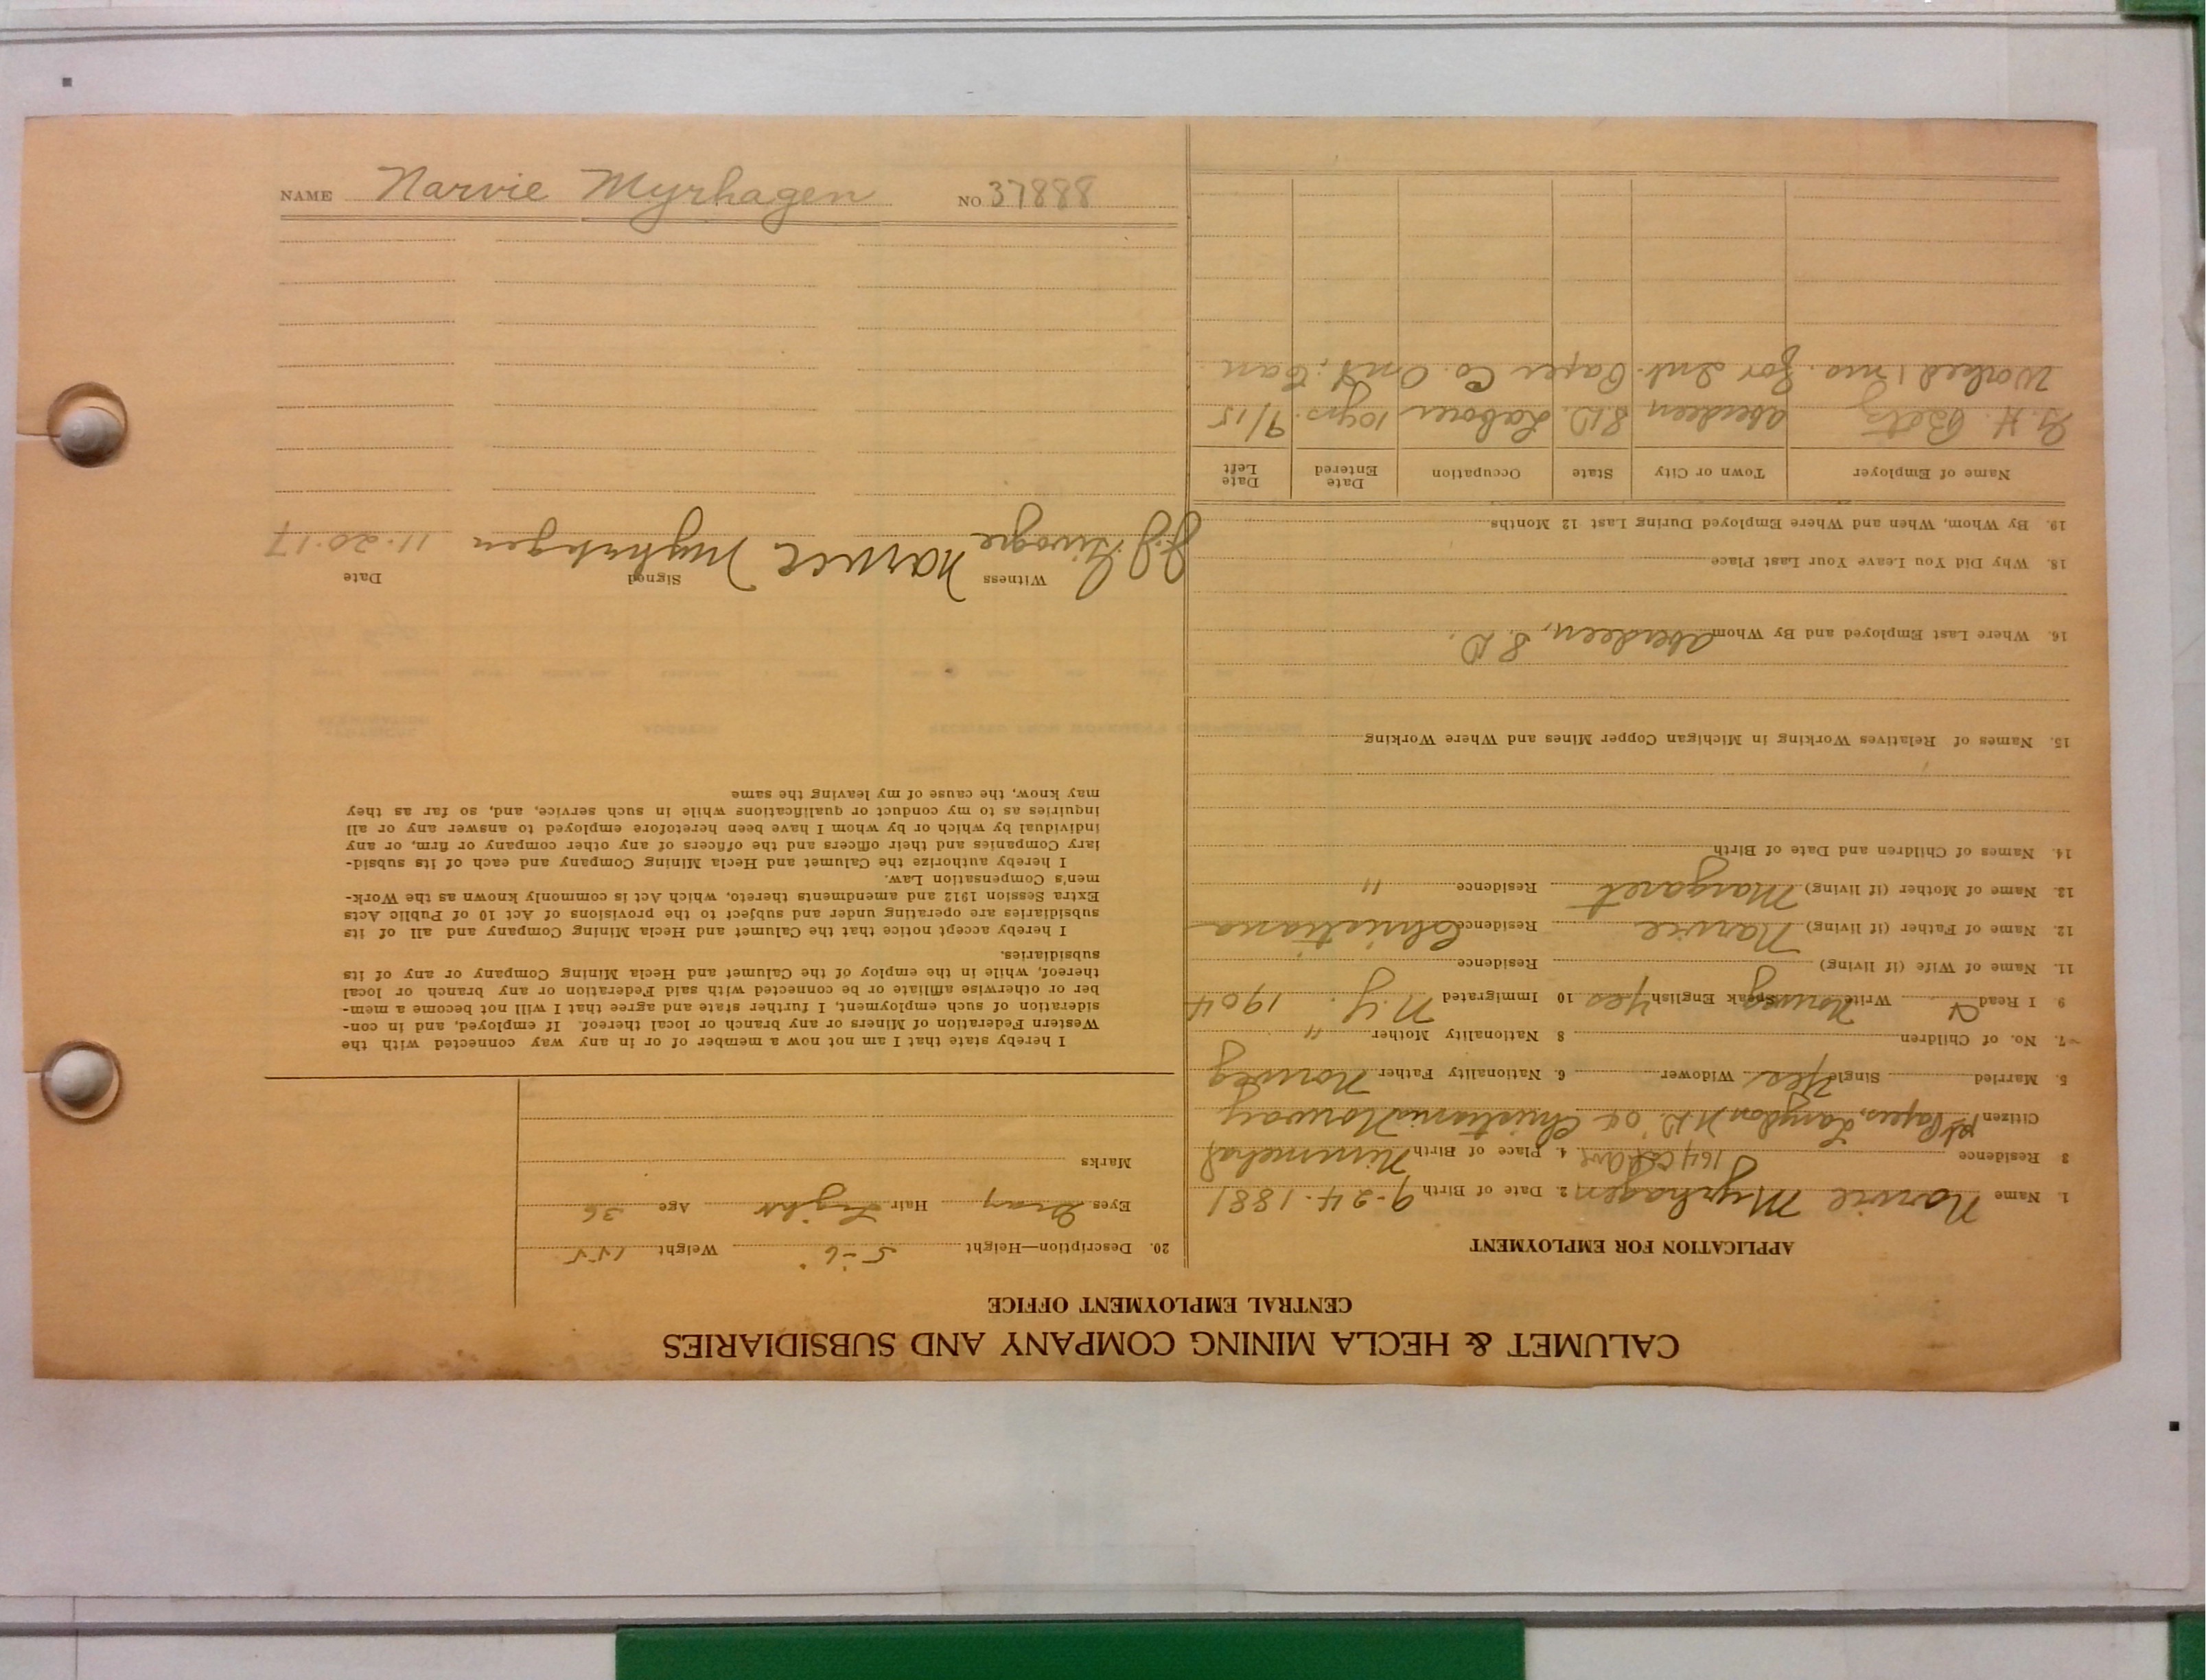 CALUMET & HECLA MINING COMPANY AND SUBSIDIARIES
CENTRAL EMPLOYMENT OFFICE
APPLICATION FOR EMPLOYMENT
1. Name Narvie Myrhagen 2. Date of Birth 9-24-1881
3 Residence 164 Ave 4. Place of Birth
Citizen pt Papers, Langdon N.D. Christiania Norway
5. Married Single Yes Widower 6. Nationality Father Norweg
7. No. of Children 8 Nationality Mother "
9 I Read Write Norweg Speak English Yes 10 Immigrated N.Y. 1904
11. Name of Wife (if living) Residence
12. Name of Father (if living) Narvie Residence Christiana
13. Name of Mother (if living) Margaret Residence "
14. Names of Children and Date of Birth
15. Names of Relatives Working in Michigan Copper Mines and Where Working
16. Where Last Employed and By Whom Aberdeen, S.D.
18. Why Did You Leave Your Last Place
19. By Whom, When and Where Employed During Last 12 Months
Name of Employer Town or City State Occupation Date Entered Date Left
H. Betz Aberdeen S.D. Laborer 10 yrs. 9/15
Worked 1 mo. for Int. Paper Co. Ont, Can
20. Description—Height 5'-6" Weight 155
Eyes Gray Hair Light Age 36
Marks
I hereby state that I am not now a member of or in any way connected with the
Western Federation of Miners or any branch or local thereof. If employed, and in con-
sideration of such employment, I further state and agree that I will not become a mem-
ber or otherwise affiliate or be connected with said Federation or any branch or local
thereof, while in the employ of the Calumet and Hecla Mining Company or any of its
subsidiaries.
I hereby accept notice that the Calumet and Hecla Mining Company and all of its
subsidiaries are operating under and subject to the provisions of Act 10 of Public Acts
Extra Session 1912 and amendments thereto, which Act is commonly known as the Work-
men's Compensation Law.
I hereby authorize the Calumet and Hecla Mining Company and each of its subsid-
iary Companies and their officers and the officers of any other company or firm, or any
individual by which or by whom I have been heretofore employed to answer any or all
inquiries as to my conduct or qualifications while in such service, and, so far as they
may know, the cause of my leaving the same
Witness Signed Date
Narvie Myhrhagen 11-20-17
NAME Narvie Myrhagen NO 37888